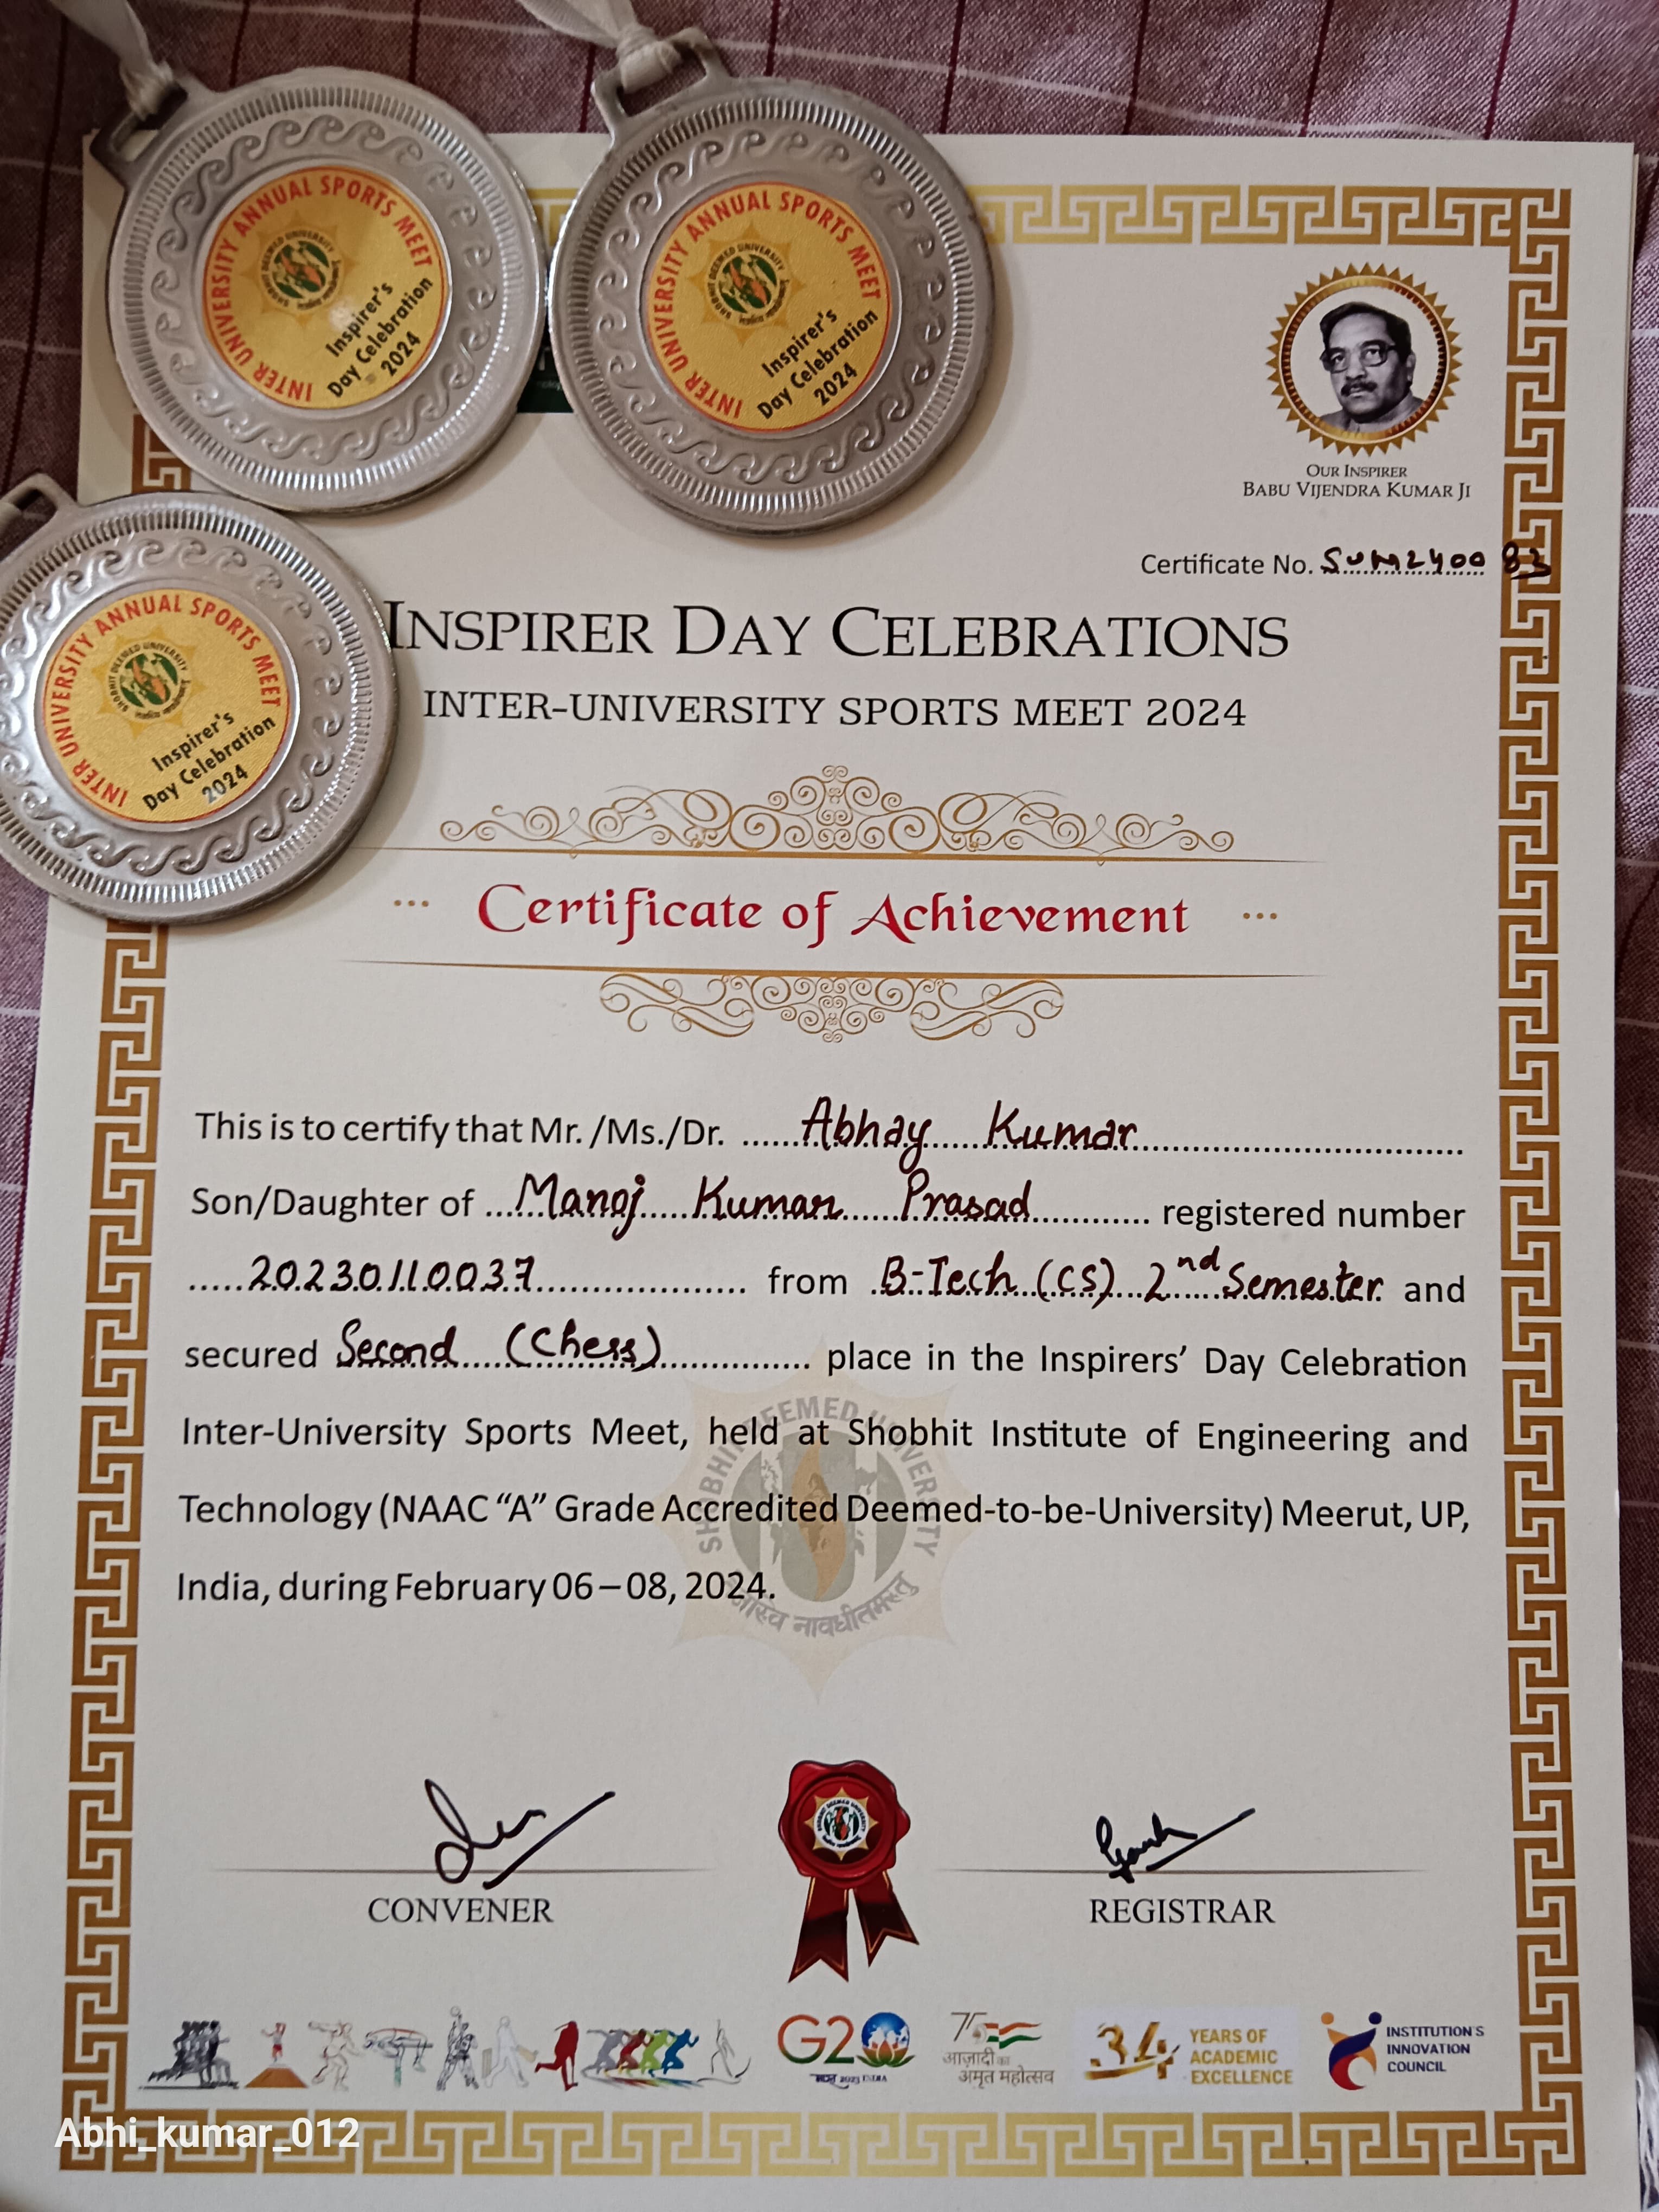 INTER UNIVERSITY ANNUAL SPORTS MEET
SHOBHIT DEEMED UNIVERSITY
Inspirer's
Day Celebration
2024
INTER UNIVERSITY ANNUAL SPORTS MEET
SHOBHIT DEEMED UNIVERSITY
Inspirer's
Day Celebration
2024
INTER UNIVERSITY ANNUAL SPORTS MEET
SHOBHIT DEEMED UNIVERSITY
Inspirer's
Day Celebration
2024
OUR INSPIRER
BABU VIJENDRA KUMAR JI
Certificate No. SUM240083
INSPIRER DAY CELEBRATIONS
INTER-UNIVERSITY SPORTS MEET 2024
Certificate of Achievement
This is to certify that Mr. /Ms./Dr. Abhay Kumar
Son/Daughter of Manoj Kumar Prasad registered number
20230110037 from B-Tech (CS) 2nd Semester and
secured Second (Chess) place in the Inspirers’ Day Celebration
Inter-University Sports Meet, held at Shobhit Institute of Engineering and
Technology (NAAC “A” Grade Accredited Deemed-to-be-University) Meerut, UP,
India, during February 06 – 08, 2024.
SHOBHIT DEEMED UNIVERSITY
नावधीतमस्तु
CONVENER
REGISTRAR
SHOBHIT DEEMED UNIVERSITY
G20
भारत 2023 INDIA
75
आज़ादी का
अमृत महोत्सव
34 YEARS OF
ACADEMIC
EXCELLENCE
INSTITUTION'S
INNOVATION
COUNCIL
Abhi_kumar_012